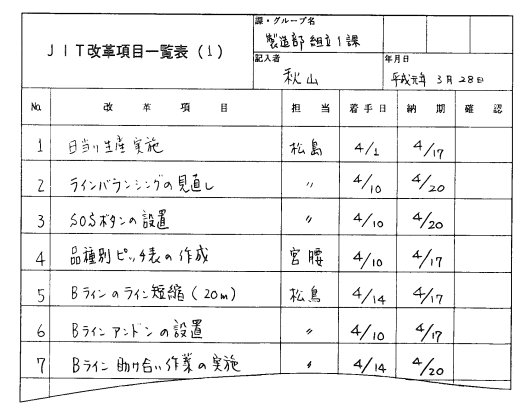 JIT改革項目一覧表(1)
課・グループ名
製造部 組立1課
記入者
秋山
年月日
平成元年 3月 28日
No. 改革項目 担当 着手日 納期 確認
1 日当り生産実施 松島 4/1 4/17
2 ラインバランシングの見直し 〃 4/10 4/20
3 SOSボタンの設置 〃 4/10 4/20
4 品種別ピッチ表の作成 宮腰 4/10 4/17
5 Bラインのライン短縮(20m) 松島 4/14 4/17
6 Bラインアンドンの設置 〃 4/10 4/17
7 Bライン助け合い作業の実施 〃 4/14 4/20